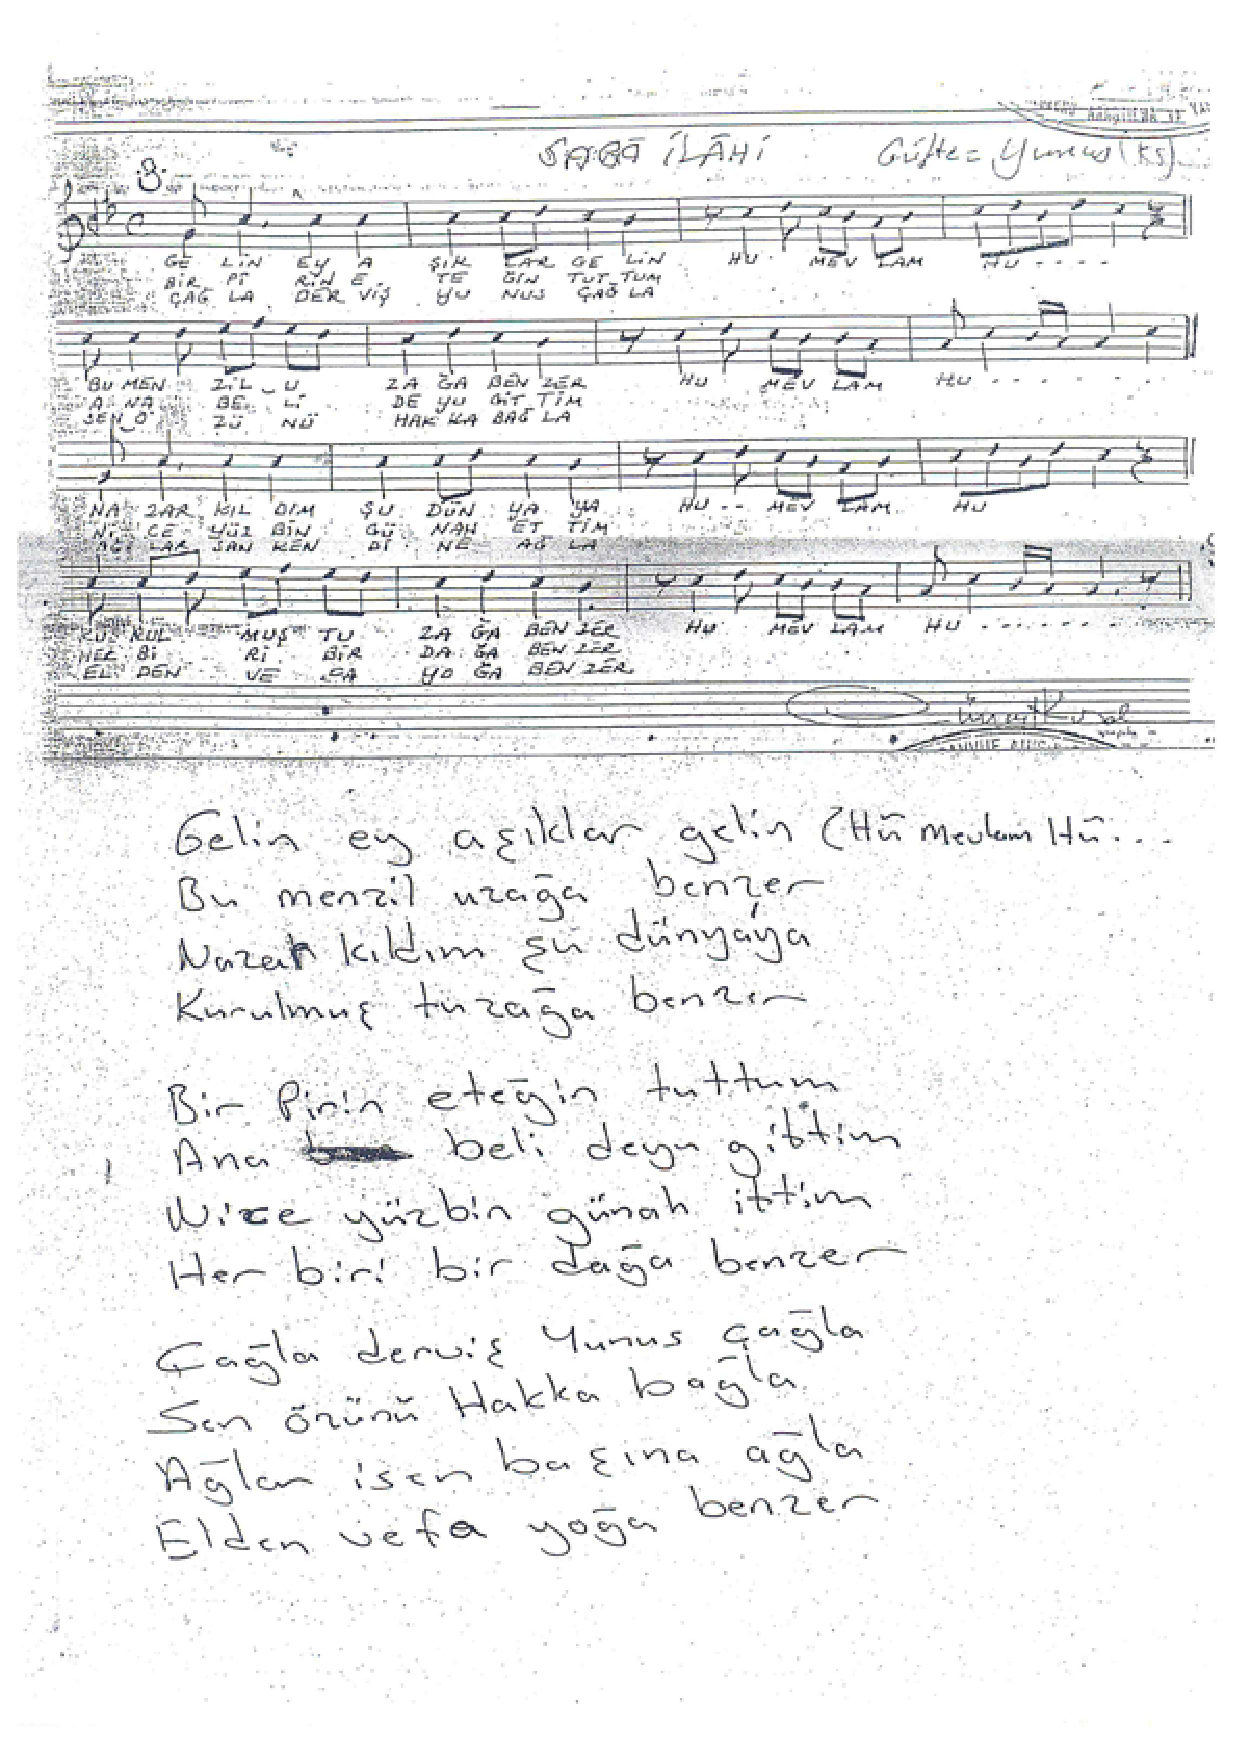 SABÂ İLÂHİ Güfte= Yunus (KS)
3
GE LİN EY A ŞIK LAR GE LİN HU MEV LAM HU - - - -
BİR Pİ RİN E TE ĞİN TUT TUM
ÇAĞ LA DER VİŞ YU NUS ÇAĞ LA
BU MEN ZİL U ZA ĞA BEN ZER HU MEV LAM HU - - - - - -
A NA BE Lİ DE YU GİT TİM
SEN Ö ZÜ NÜ HAK KA BAĞ LA
NA ZAR KIL DIM ŞU DÜN YA YA HU - - MEV LAM HU
Nİ CE YÜZ BİN GÜ NAH ET TİM
NE AĞ LA
KU RUL MUŞ TU ZA ĞA BEN ZER HU MEV LAM HU - - - - - -
HER Bİ Rİ BİR DA ĞA BEN ZER
EL DEN VE FA YO ĞA BEN ZER
Gelin ey aşıklar gelin (Hû mevlam Hû...
Bu menzil uzağa benzer
Nazar kıldım şu dünyaya
Kurulmuş tuzağa benzer
Bir Pirin eteğin tuttum
Ana beli deyu gittim
Nice yüzbin günah ittim
Her biri bir dağa benzer
Çağla derviş Yunus çağla
Sen özünü Hakka bağla
Ağlar isen başına ağla
Elden vefa yoğa benzer